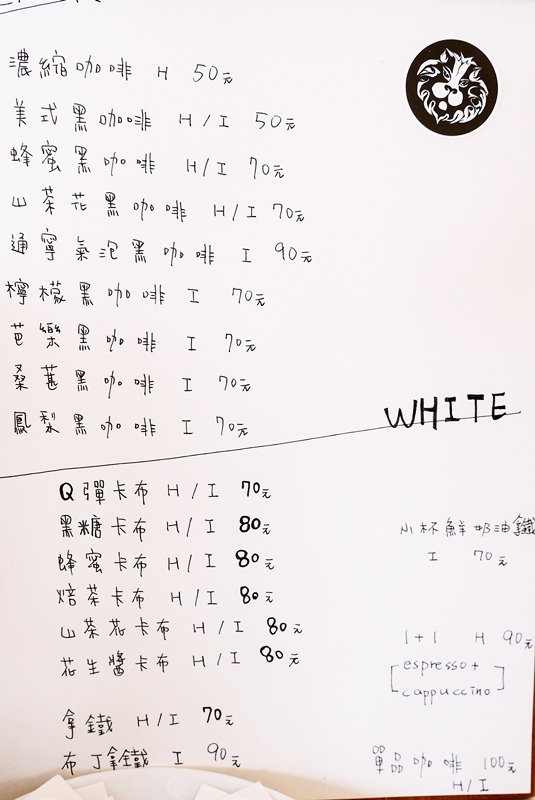 濃縮咖啡 H 50元
美式黑咖啡 H/I 50元
蜂蜜黑咖啡 H/I 70元
山茶花黑咖啡 H/I 70元
通寧氣泡黑咖啡 I 90元
檸檬黑咖啡 I 70元
芭樂黑咖啡 I 70元
桑葚黑咖啡 I 70元
鳳梨黑咖啡 I 70元
WHITE
Q彈卡布 H/I 70元
黑糖卡布 H/I 80元
蜂蜜卡布 H/I 80元
焙茶卡布 H/I 80元
山茶花卡布 H/I 80元
花生醬卡布 H/I 80元
拿鐵 H/I 70元
布丁拿鐵 I 90元
小杯鮮奶油拿鐵
I 70元
1+1 H 90元
[espresso+
cappuccino]
單品咖啡 100元
H/I